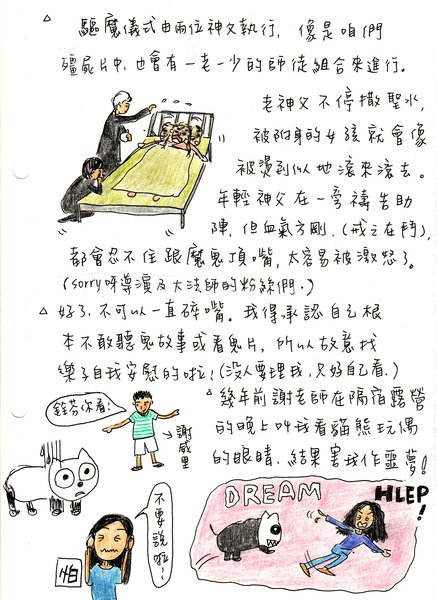 △ 驅魔儀式由兩位神父執行, 像是咱們
殭屍片中, 也會有一老一少的師徒組合來進行。
老神父不停撒聖水,
被附身的女孩就會像
被燙到似地滾來滾去。
年輕神父在一旁禱告助
陣, 但血氣方剛, (戒之在鬥),
都會忍不住跟魔鬼頂嘴, 太容易被激怒了。
(sorry呼導演及大法師的粉絲們。)
△ 好了, 不可以一直碎嘴。我得承認自己根
本不敢聽鬼故事或看鬼片, 所以故意找
樂子自我安慰的啦!(沒人要理我, 只好自己看。)
△ 幾年前謝老師在隔宿露營
的晚上叫我看貓熊玩偶
的眼睛, 結果害我作噩夢!
芬你看!
謝威里
不要說啦~
怕
DREAM
HLEP!